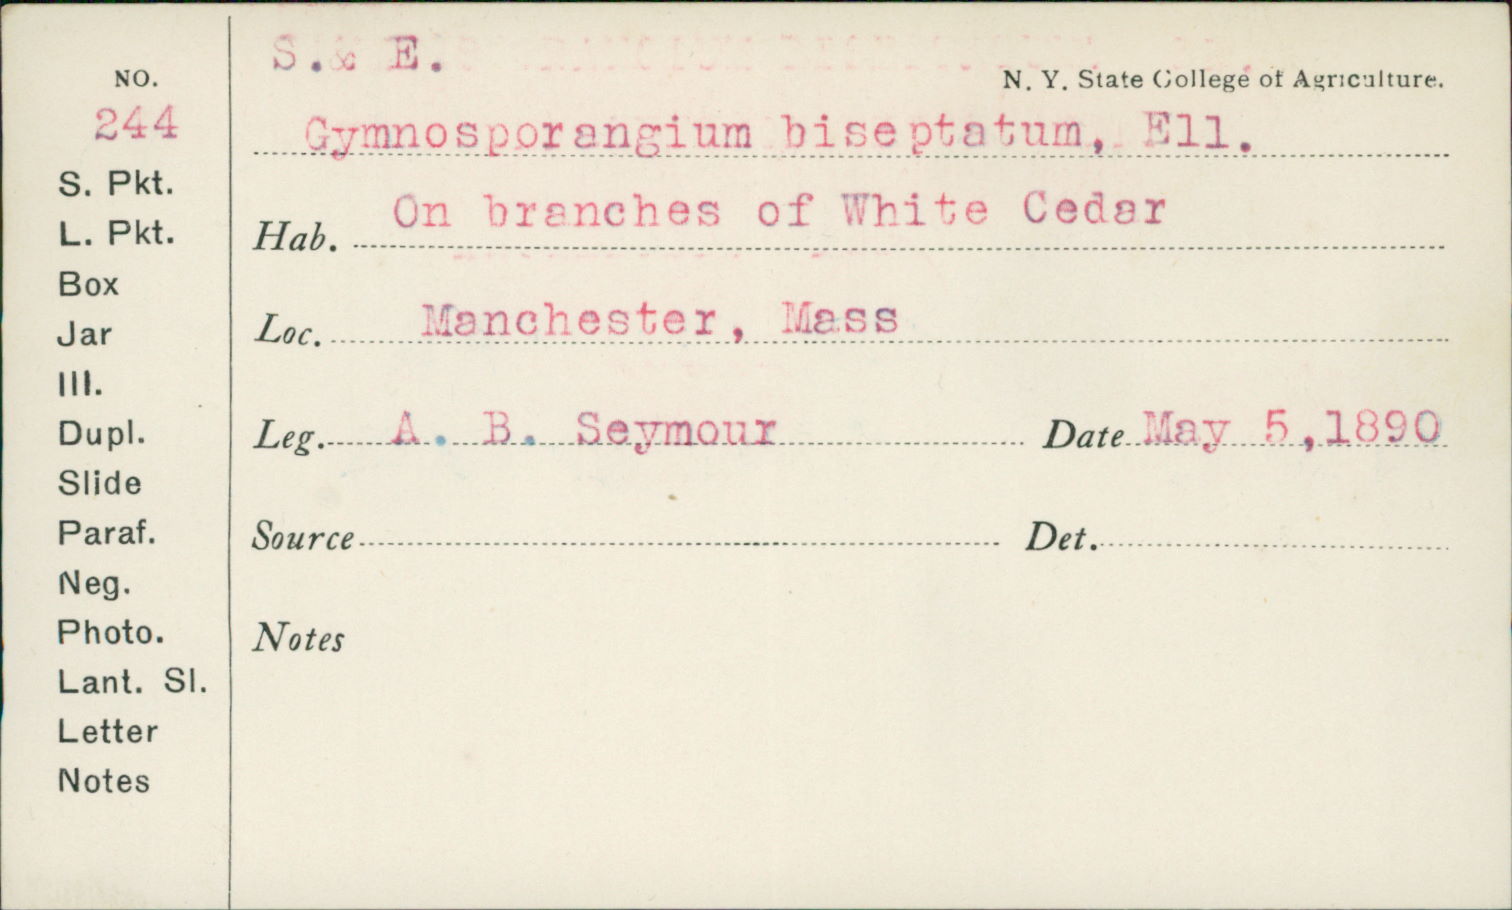 S.& E.
NO.
N. Y. State College of Agriculture.
244
Gymnosporangium biseptatum, Ell.
S. Pkt.
Hab. On branches of White Cedar
L. Pkt.
Box
Loc. Manchester, Mass
Jar
Ill.
Leg. A. B. Seymour Date May 5,1890
Dupl.
Slide
Source Det.
Paraf.
Neg.
Notes
Photo.
Lant. Sl.
Letter
Notes